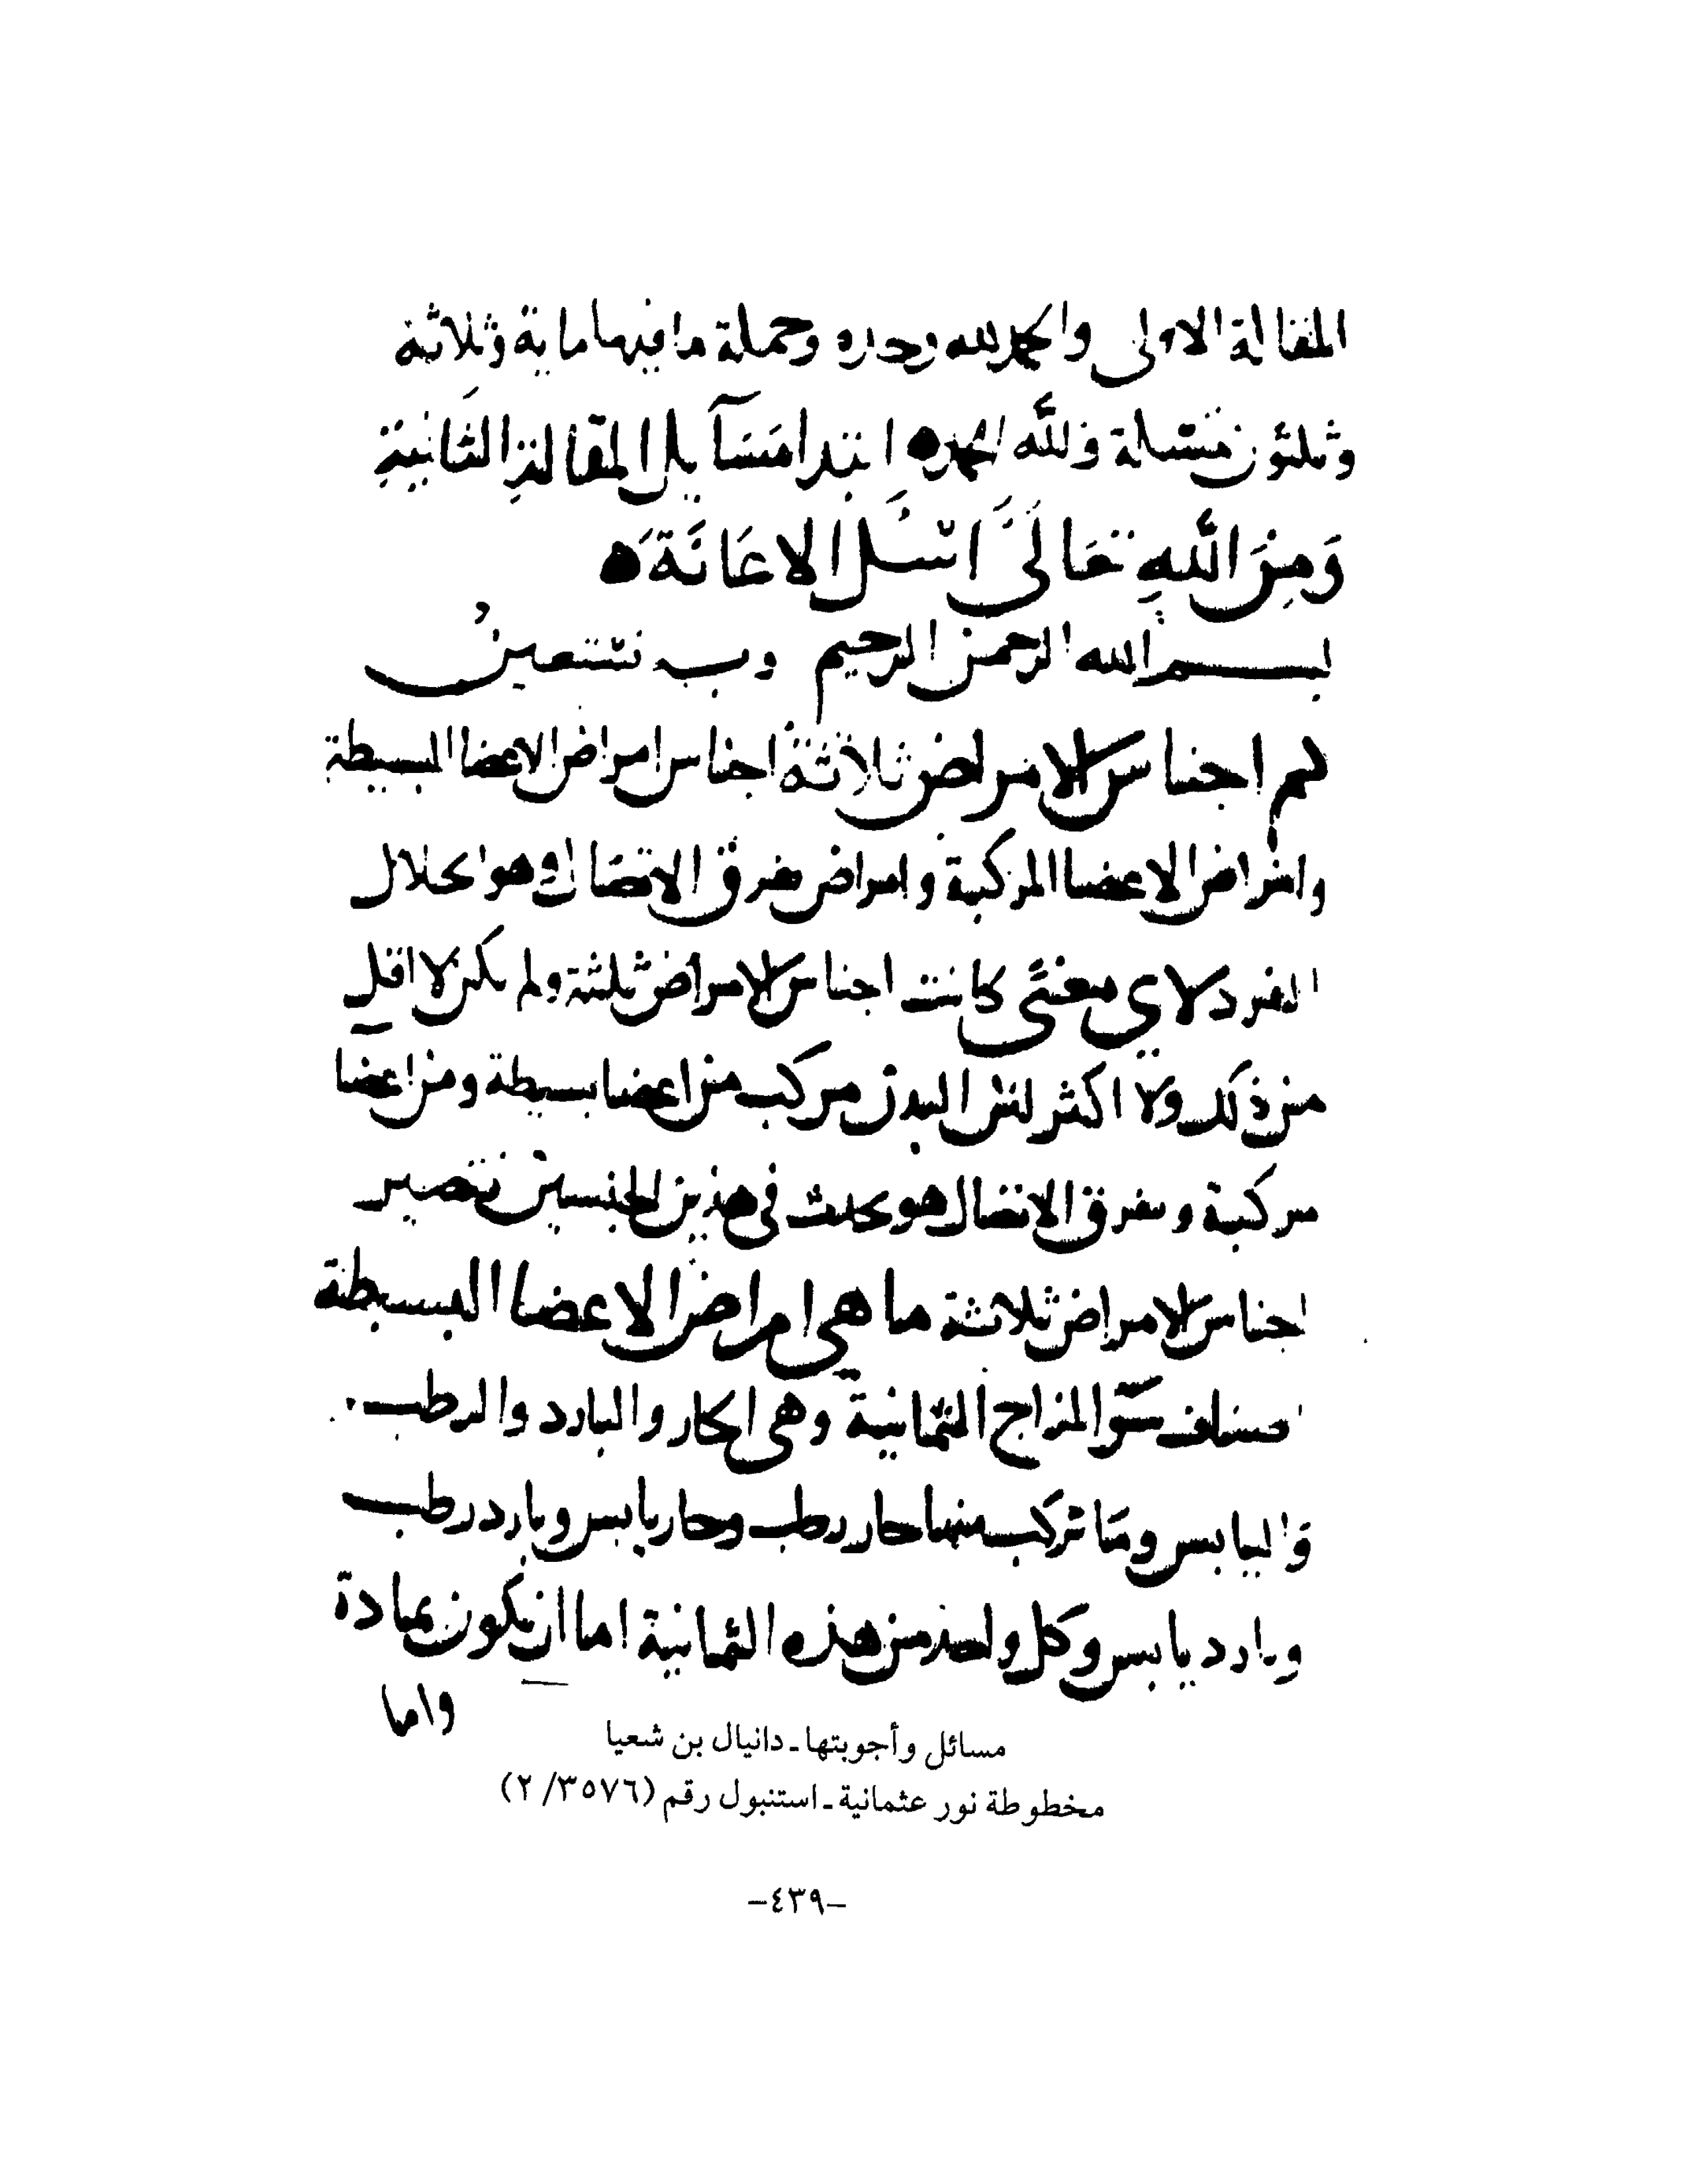 المقالة الاولى والحمد لله وحده وجملة ما فيها ماية وثلاثة
وثلثون مسئلة ولله الحمد ه ابتدا مسآيل المقالة الثانية
وَمِنَ اللهِ تعَالَىَ اسئَل الاعَانَة ه
بسم الله الرحمن الرحيم وبه نستعين
كم اجناس الامراض ثلاثة اجناس امراض الاعضا البسيطة
وامراض الاعضا المركبة وامراض تفرق الاتصال وهو انحلال
الفرد لاي معنًى كانت اجناس الامراض ثلثة ولم تكن لا اقل
من ذلك ولا اكثر لان البدن مركب من اعضا بسيطة ومن اعضا
مركبة وتفرق الاتصال هو يحدث في هذين الجنسين فتصير
اجناس الامراض ثلاثة ما هي امراض الاعضا البسيطة
اصناف سوّ المزاج الثمانية وهي الحار والبارد والرطب
واليابس وما تركب منها حار رطب وحار يابس وبارد رطب
وبارد يابس وكل واحد من هذه الثمانية اما ان يكون بمادة
واما
مسائل وأجوبتها ـ دانيال بن شعيا
مخطوطة نور عثمانية ـ استنبول رقم (٣٥٧٦/ ٢)
–٤٣٩–